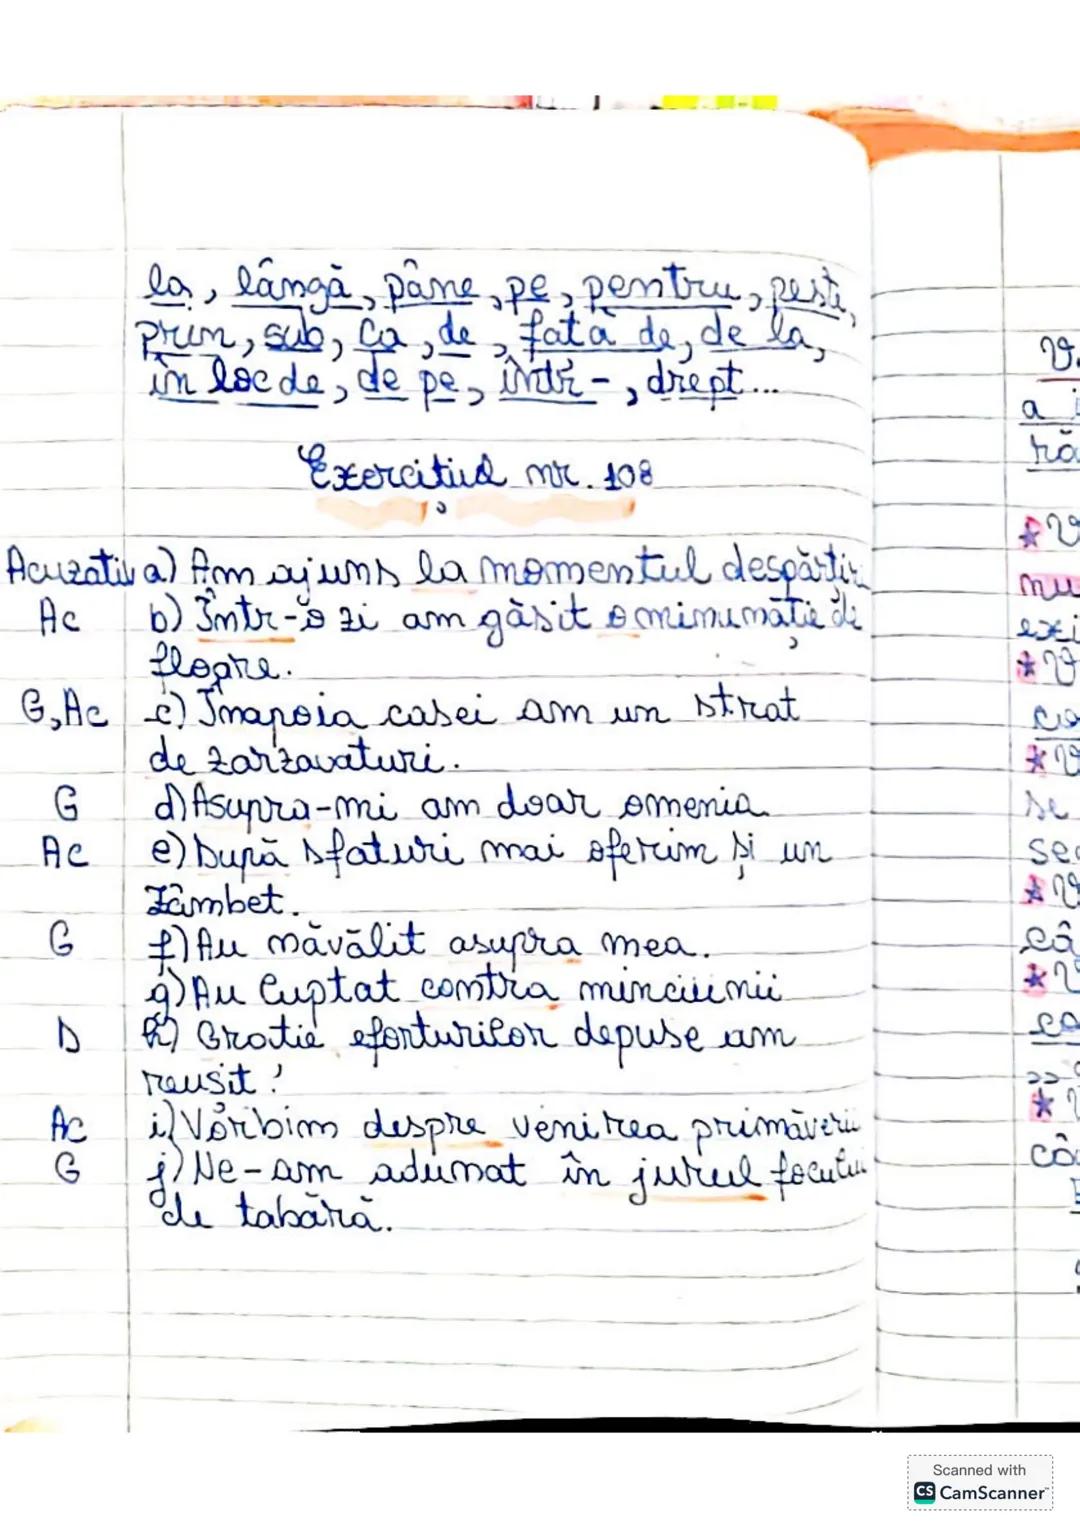 la, lângă, pâne, pe, pentru, peste,
prin, sub, ca, de, fată de, de la,
în loc de, de pe, într-, drept...
Exercițiul nr. 108
Acuzativ a) Am ajuns la momentul despărțirii
Ac b) Într-o zi am găsit o minunăție de
floare.
G, Ac c) Înapoia casei am un strat
de zarzavaturi.
G d) Asupra-mi am doar omenia
Ac e) După sfaturi mai oferim și un
zâmbet.
G f) Au năvălit asupra mea.
g) Au luptat contra minciunii
D h) Gratie eforturilor depuse am
reusit!
Ac i) Vorbim despre venirea primăverii
G j) Ne-am adunat în jurul focului
de tabără.
a
mu
exi
se
câ
Scanned with
CS CamScanner